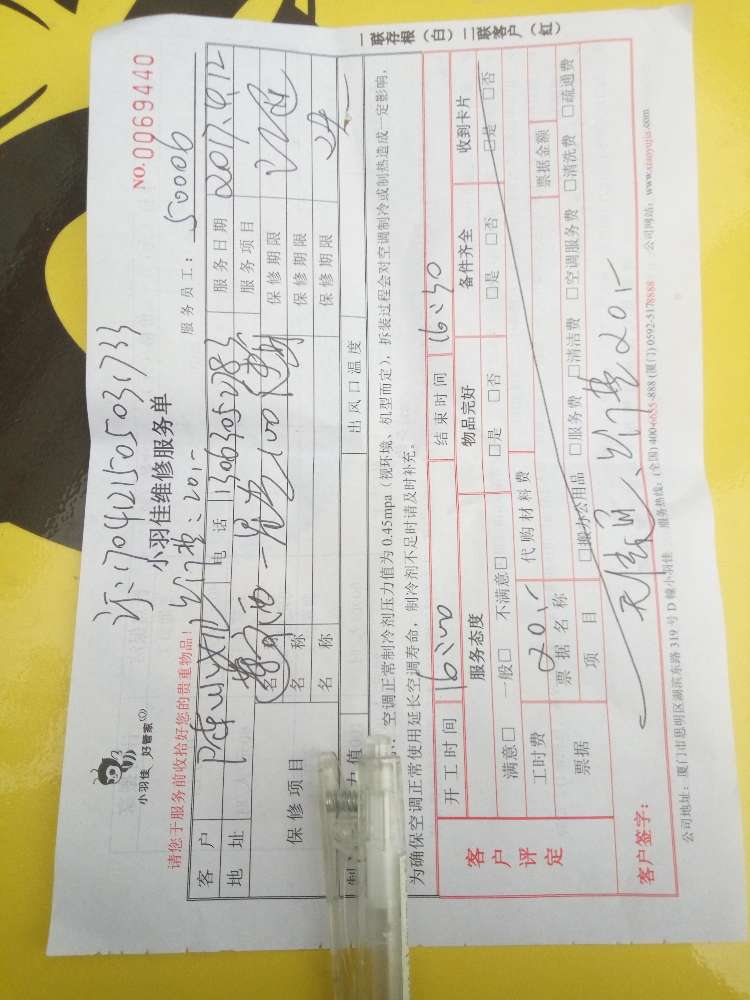 一联存根（白）二联客户（红）
小羽佳 好管家
NO.0069440
小羽佳维修服务单
请您于服务前收拾好您的贵重物品！
服务员工： 50006
客户 电话 13063052783 服务日期 2017.9.12
地址 服务项目
保修项目 名称 保修期限
名称 保修期限
名称 保修期限
力值 出风口温度
空调正常制冷剂压力值为0.45mpa（视环境、机型而定），拆装过程会对空调制冷或制热造成一定影响，
为确保空调正常使用延长空调寿命，制冷剂不足时请及时补充。
客户评定
开工时间 16:00 结束时间 16:30
服务态度 物品完好 备件齐全 收到卡片
满意□ 一般□ 不满意□ □是 □否 □是 □否 □是 □否
工时费 20.- 代购材料费 票据金额
票据 票据名称
项目 □搬办公用品 □服务费 □清洁费 □空调服务费 □清洗费 □疏通费
客户签字：
20.-
公司地址：厦门市思明区湖滨东路319号D幢小羽佳 服务热线：(全国)400-6655-888 (厦门)0592-5178888 公司网站：www.xiaoyujia.com